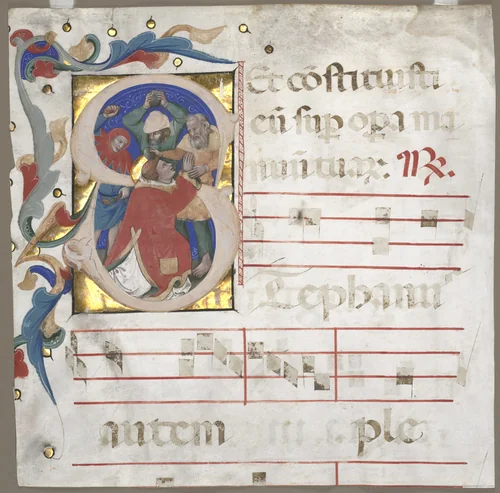 Et cõstituisti
eũ sup opa ma
nuũ tuaꝝ. ℟.
Stephanus
autem ple